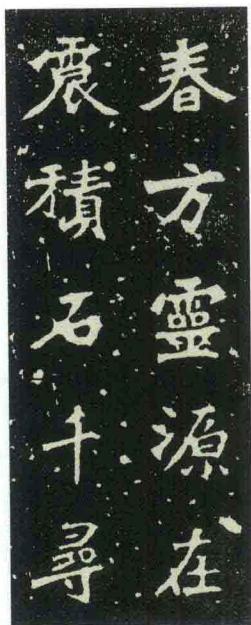 春方靈源在
震積石千尋